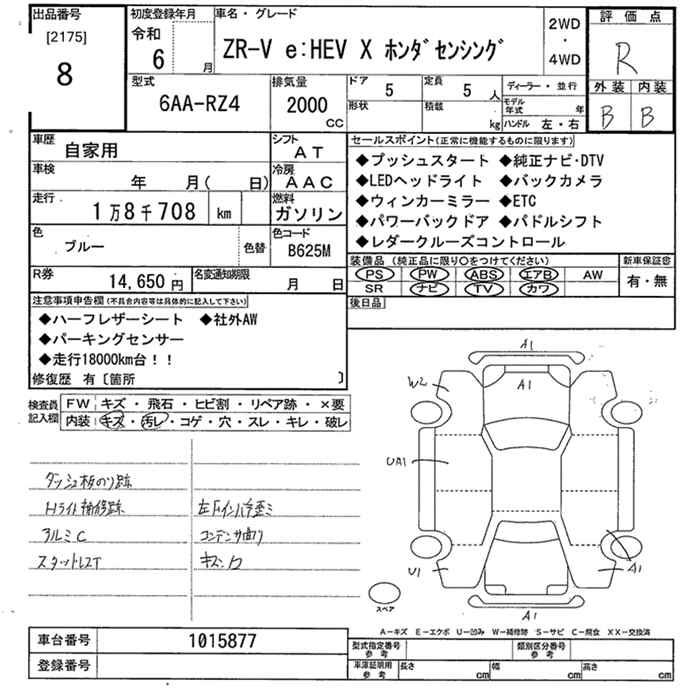 出品番号
[2175]
8
初度登録年月
令和
6 月
車名・グレード
ZR-V e:HEV X ホンダセンシング
2WD
・
4WD
評価点
R
外装 内装
B B
型式
6AA-RZ4
排気量
2000
CC
ドア
5
定員
5 人
形状
積載
kg
ディーラー・並行
モデル年式 年
ハンドル 左・右
車歴
自家用
シフト
AT
車検
年 月( 日)
冷房
AAC
走行
1万8千708 km
燃料
ガソリン
色
ブルー
色替
色コード
B625M
R券
14,650円
名変通知期限
月 日
セールスポイント(正常に機能するものに限ります)
◆プッシュスタート ◆純正ナビ・DTV
◆LEDヘッドライト ◆バックカメラ
◆ウィンカーミラー ◆ETC
◆パワーバックドア ◆パドルシフト
◆レダークルーズコントロール
装備品 (純正品に限り○をつけてください)
新車保証書
PS PW ABS エアB AW
SR ナビ TV カワ
有・無
後日品
注意事項申告欄(不具合内容等は具体的に記入して下さい)
◆ハーフレザーシート ◆社外AW
◆パーキングセンサー
◆走行18000km台!!
修復歴 有〔箇所 〕
検査員
記入欄
FW キズ・飛石・ヒビ割・リペア跡・×要
内装 キズ・汚レ・コゲ・穴・スレ・キレ・破レ
ダッシュ板のり跡
Hライト補修跡
アルミC
スタットレスT
コンデンサ曲り
A1
W2
A1
UA1
U1
A1
A1
スペア
A-キズ E-エクボ U-凹み W-補修跡 S-サビ C-腐食 XX-交換済
車台番号
1015877
登録番号
型式指定番号
参考
類別区分番号
参考
車庫証明用
参考
長さ cm
幅 cm
高さ cm